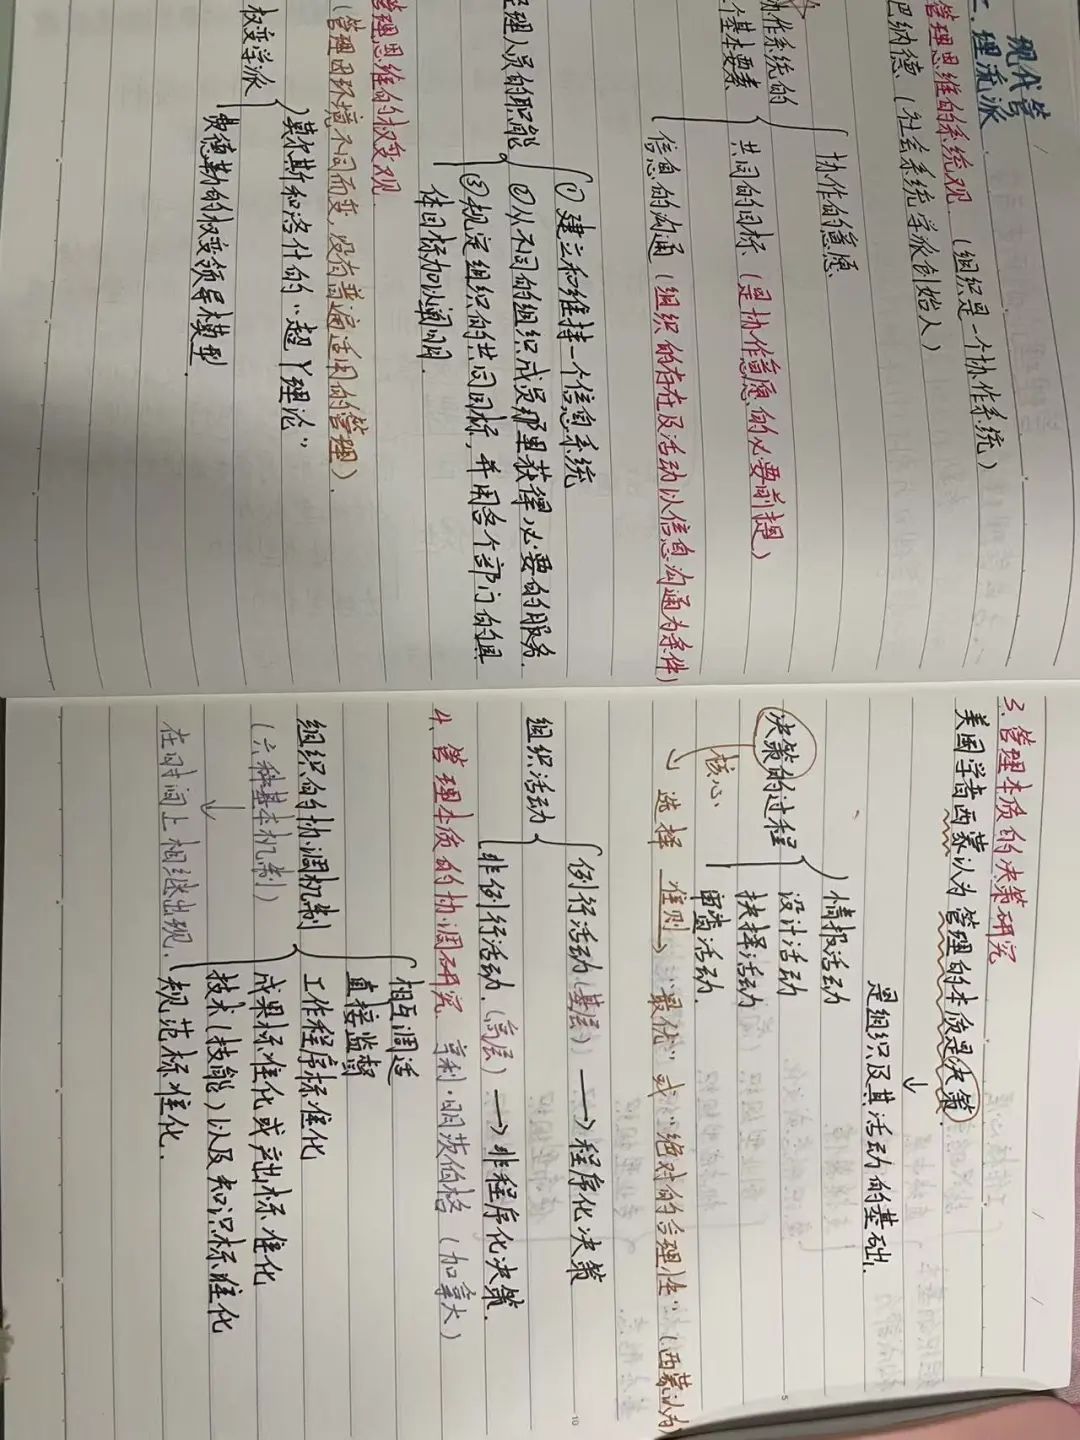 二、现代管理流派
管理思维的系统观 (组织是一个协作系统)
巴纳德 (社会系统学派创始人)
协作系统的
个基本要素
协作的意愿
共同的目标 (是协作意愿的必要前提)
信息的沟通 (组织的存在及活动以信息沟通为条件)
管理人员的职能
① 建立和维持一个信息系统
② 从不同的组织成员那里获得必要的服务.
③ 规定组织的共同目标, 并用各个部门的具
体目标加以阐明.
管理思维的权变观.
(管理因环境不同而变, 没有普遍适用的管理).
权变学派
莫尔斯和洛什的“超Y理论”
费德勒的权变领导模型.
3. 管理本质的决策研究
美国学者西蒙认为管理的本质是决策.
↓
是组织及其活动的基础.
决策的过程
情报活动
设计活动
抉择活动
审查活动.
核心.
↓ 选择 准则→“最优”或“绝对的合理性”(西蒙认为
组织活动
例行活动(基层) → 程序化决策
非例行活动.(高层) → 非程序化决策.
4. 管理本质的协调研究. 亨利·明茨伯格 (加拿大)
组织的协调机制
(六种基本机制)
↓
在时间上相继出现.
相互调适
直接监督
工作程序标准化
成果标准化或产出标准化
技术(技能)以及知识标准化
规范标准化.
5
10